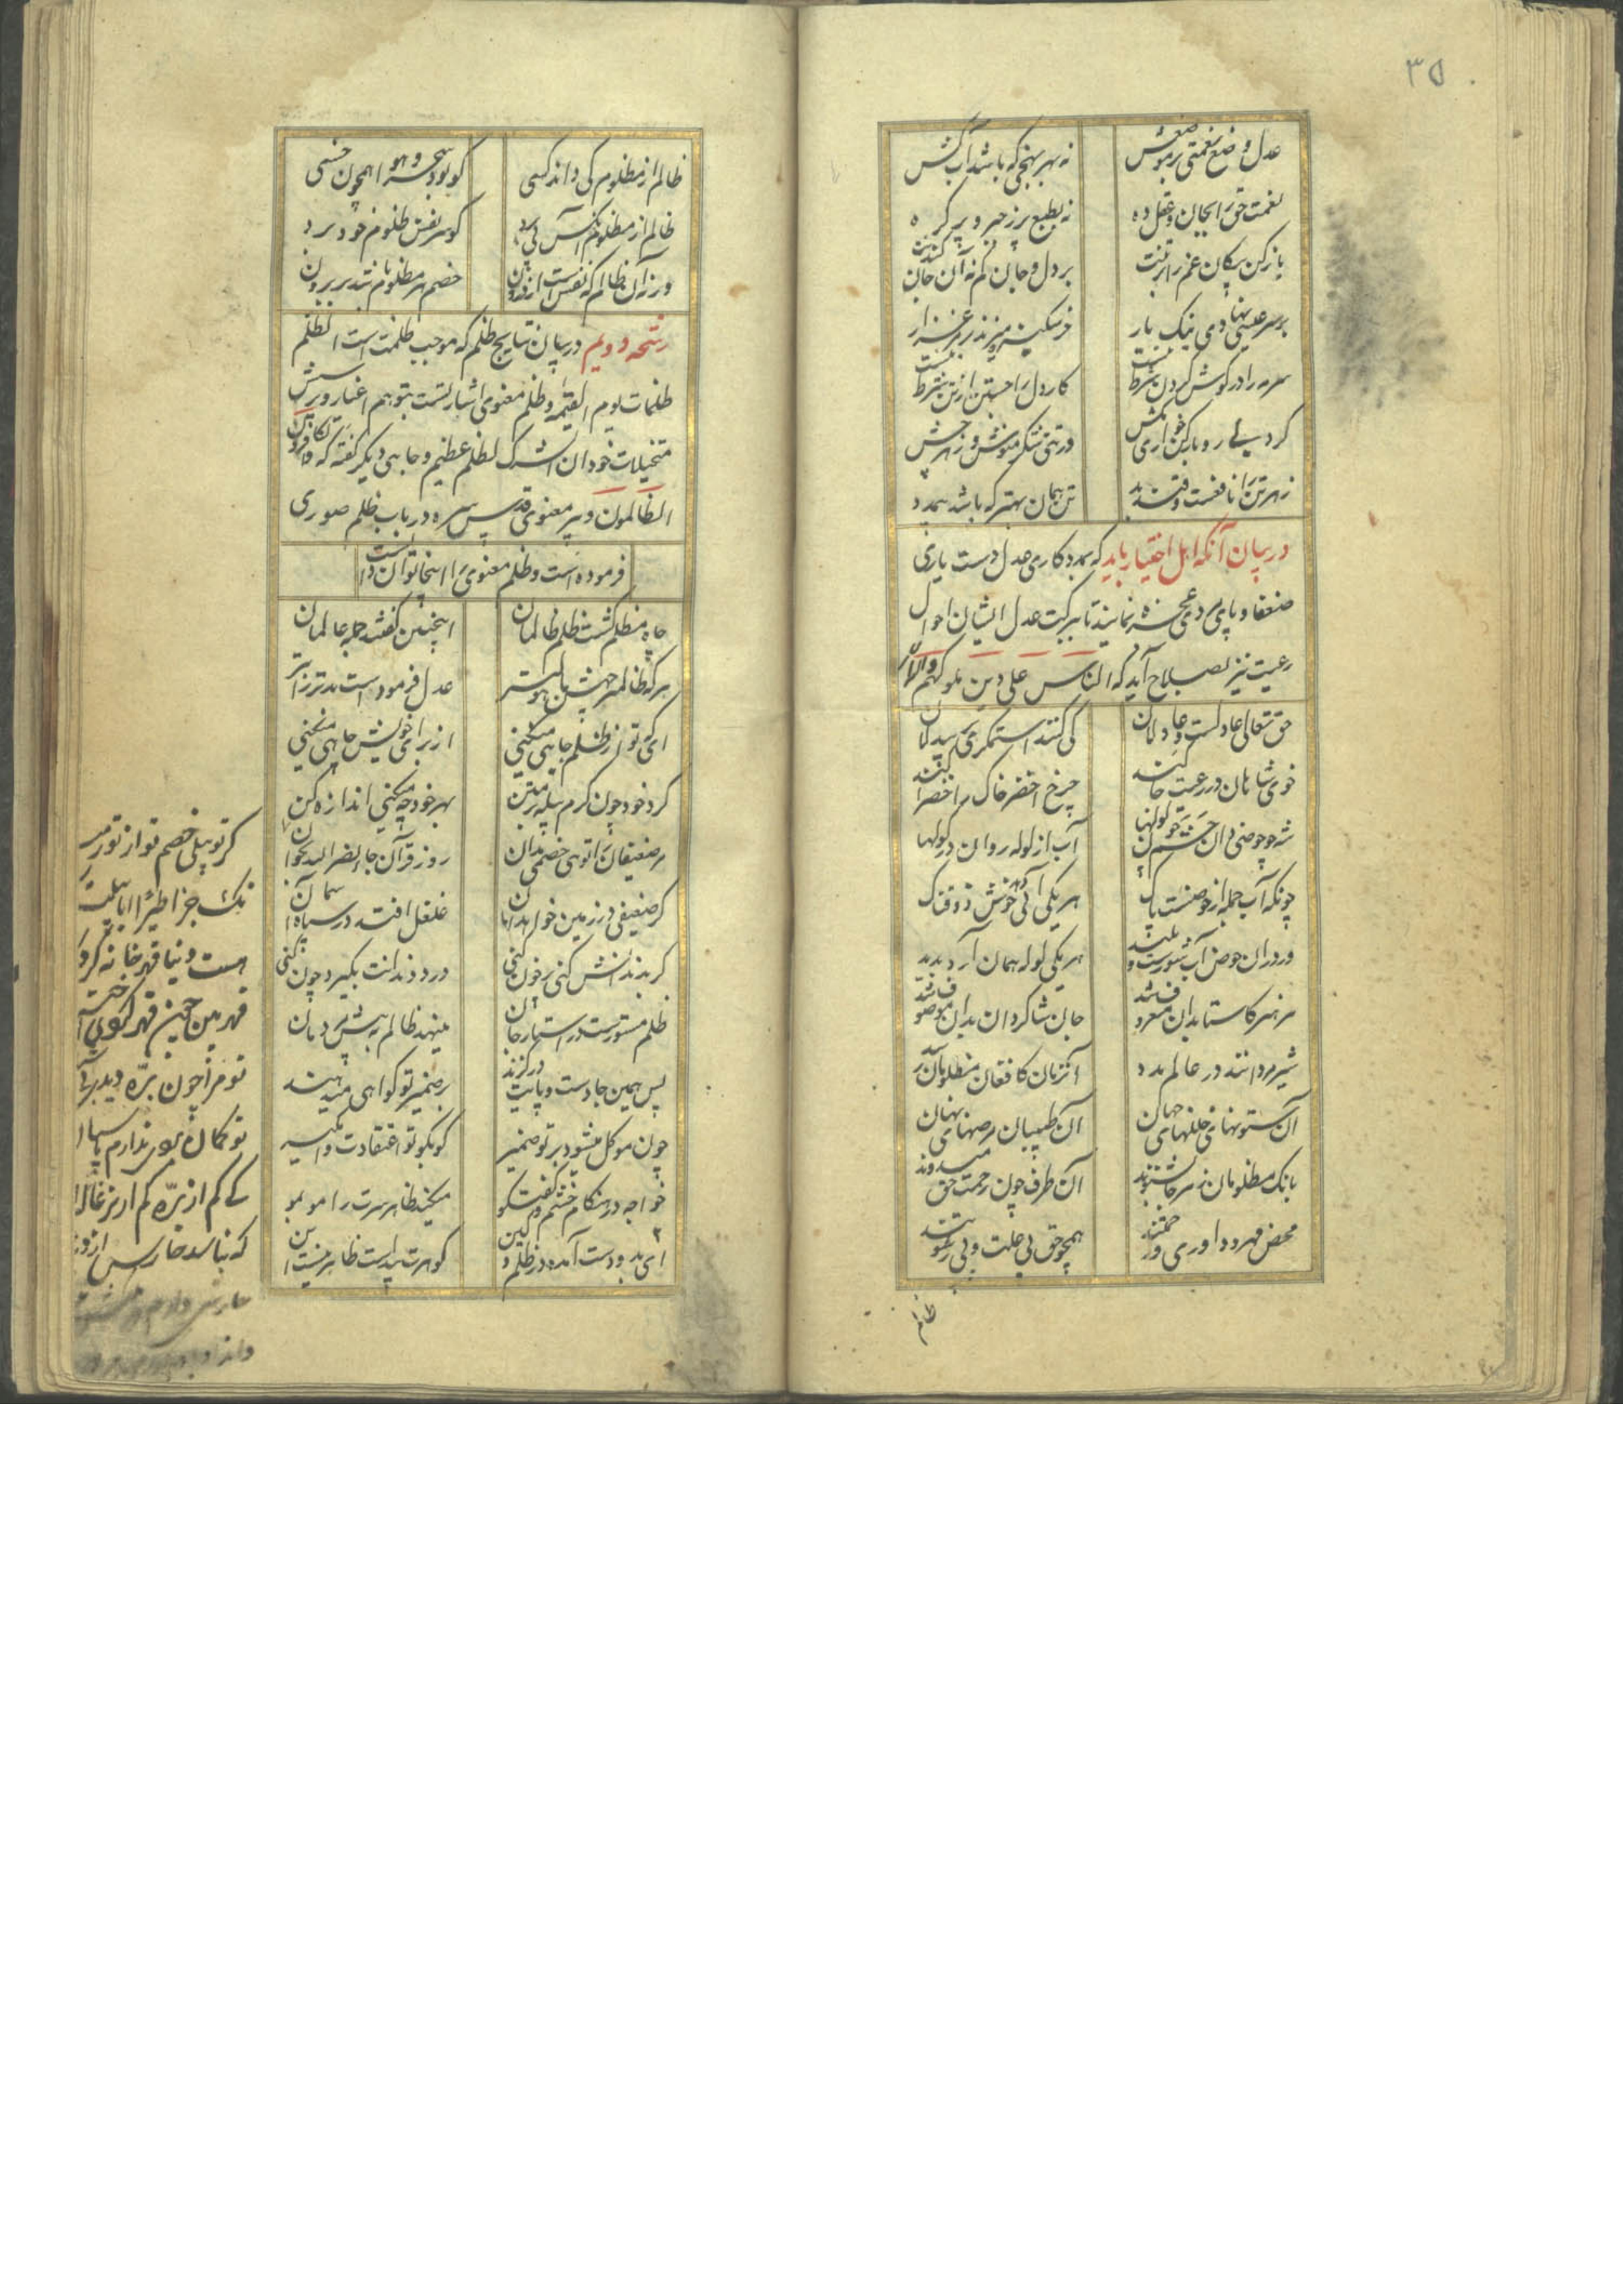 ۳۵
عدل وضع نعمتی بر موضعش نه بهر بیخی که باشد آب کش
نعمت حق را بجان و عقل ده نه بطبع پر زحیر و پر کره
بار کن پیکار غم را بر تنت بر دل و جان کم نه آن جان کندنت
بر سر عیسی نهاده تنک بار خر سکیزه میزند در مرغزار
سرمه را در کوش کردن شرط نیست کار دل را جستن از تن شرط نیست
کر دلی رو ناز کن خواری مکش ور تنی شکر منوش و زهر چش
زهر تن را نافعست و قند بد تن همان بهتر که باشد بی مدد
در بیان آنکه اهل اختیار باید که بمددکاری عدل دست یاری
ضعفا و پای مردی عجزه نمایند تا ببرکت عدل ایشان احوال
رعیت نیز بصلاح آید که الناس علی دین ملوکهم
حق تعالی عادلست و عادلان کی کنند استمکری بر بیدلان
خوی شاهان در رعیت جا کند چرخ اخضر خاک را خضرا کند
شه چو حوضی دان حشم چون لولها آب از لوله روان در کولها
چونکه آب جمله از حوضیست پاک هر یکی آبی دهد خوش ذوقناک
ور در آن حوض آب شورست و پلید هر یکی لوله همان آرد پدید
هر هنر کاستا بدان معروف شد جان شاکردان بدان موصوف شد
شیر مردانند در عالم مدد آن زمان کافغان مظلومان رسد
آن ستونهای خللهای جهان آن طبیبان مرضهای نهان
بانک مظلومان ز هر جا بشنوند آن طرف چون رحمت حق میدوند
محض مهر و داوری و رحمتند همچو حق بی علت و بی رشوتند
ظالم
ظالم از مظلوم کی داند کسی کو بود سخره هوا همچون خسی
ظالم از مظلوم آنکس پی برد کو سر نفس ظلوم خود برد
ورنه آن ظالم که نفس است از درون خصم هر مظلوم باشد از جنون
رشحه دویم در بیان نتایج ظلم که موجب ظلمت است الظلم
ظلمات یوم القیمه و ظلم معنوی اشارتست بتوهم اغیار و پرستش
متخیلات خود ان الشرک لظلم عظیم و جایی دیکر کفته که و الکافرون
هم الظالمون و پیر معنوی قدس سره در باب ظلم صوری
فرموده است و ظلم معنوی را از اینجا توان دانست
چاه مظلم کشت ظلم ظالمان اینچنین کفتند جمله عالمان
هر که ظالمتر چهش باهول تر عدل فرموده است بدتر را بتر
ای که تو از ظلم چاهی میکنی از برای خویش چاهی میکنی
کرد خود چون کرم پیله بر متن بهر خود چه میکنی اندازه کن
مر ضعیفان را تو بی خصمی مدان روز قرآن اذا جاء نصر الله بخوان
کر ضعیفی در زمین خواهد امان غلغل افتد در سپاه آسمان
کر بدندانش کزی پر خون کنی درد دندانت بکیرد چون کنی
ظلم مستورست در اسرار جان مینهد ظالم به پیش مردمان
پس همین جا دست و پایت در کزند بر ضمیر تو کواهی میدهند
چون موکل میشود بر تو ضمیر که بکو تو اعتقادت وامکیر
خواجه در هنکام خشم و کفتکو میکند ظاهر سرت را مو بمو
ای بده دست آمده در ظلم و کین کوهرت پیداست ظاهر نیست این
کر تو پیلی خصم تو از تو رمید
نک جزا طیرا ابابیلت رسید
هست دنیا قهرخانه کردکار
قهر بین چون قهر کردی اختیار
تو مرا چون بره دیدی
تو کمان بردی ندارم پاسبان
کی کم از بره کم از بزغاله ام
که نباشد حارس از دنباله ام
حارسی دارم